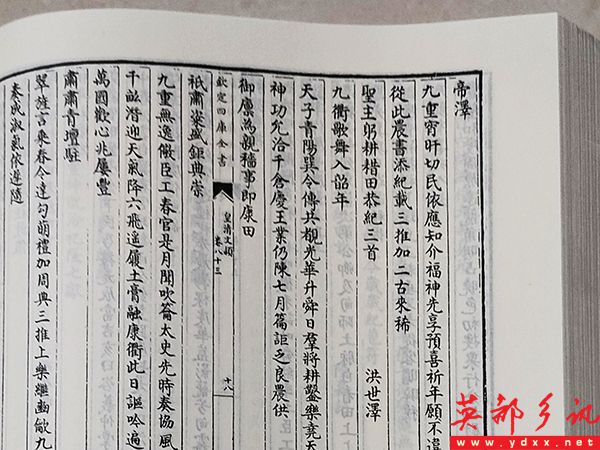 帝澤
九重宵旰切民依應知介福神先享預喜祈年願不違
從此農書添紀載三推加二古來稀
聖主躬耕耤田恭紀三首
洪世澤
九衢歌舞入韶年
天子青陽巽令傳共覩光華升舜日羣將耕鑿樂堯天
神功允洽千倉慶王業仍陳七月篇詎乏良農供
御廩為親穡事即康田
欽定四庫全書
皇清文穎
卷八十三
祇肅粢盛鉅典崇
九重無逸儆臣工春官是月聞吹籥太史先時奏協風
千畝潛迎天氣降六飛遥履土膏融康衢此日謳吟遍
萬國歡心兆屢豐
肅肅青壇駐
翠旌言乘春令達勾萌禮加周典三推上樂繼豳歈九
奏成淑氣依遲隨
英都乡讯
www.ydxx.net